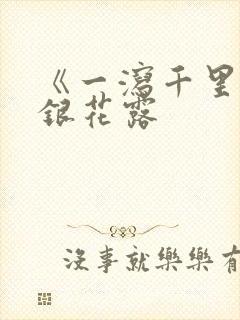 《一瀉千里
銀花露
沒事就樂樂有